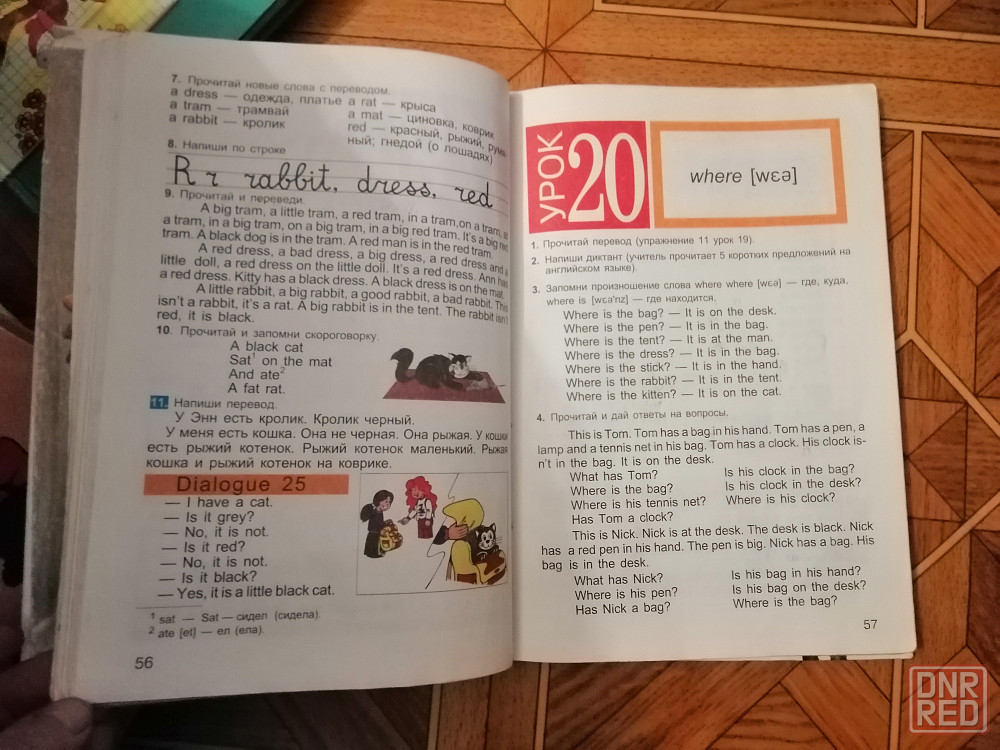 7. Прочитай новые слова с переводом.
a dress — одежда, платье a rat — крыса
a tram — трамвай a mat — циновка, коврик
a rabbit — кролик red — красный, рыжий,
ный; гнедой (о лошадях)
8. Напиши по строке
R r rabbit, dress, red
9. Прочитай и переведи.
A big tram, a little tram, a red tram, in a tram, on a tram, at
a tram, in a big tram, on a big tram, in a big red tram. It's a big red
tram. A black dog is in the tram. A red man is in the red tram.
A red dress, a bad dress, a big dress, a red dress and a
little doll, a red dress on the little doll. It's a red dress. Ann has
a red dress. Kitty has a black dress. A black dress is on the mat.
A little rabbit, a big rabbit, a good rabbit, a bad rabbit. This
isn't a rabbit, it's a rat. A big rabbit is in the tent. The rabbit isn't
red, it is black.
10. Прочитай и запомни скороговорку.
A black cat
Sat¹ on the mat
And ate²
A fat rat.
11. Напиши перевод.
У Энн есть кролик. Кролик черный.
У меня есть кошка. Она не черная. Она рыжая. У кошки
есть рыжий котенок. Рыжий котенок маленький. Рыжая
кошка и рыжий котенок на коврике.
Dialogue 25
— I have a cat.
— Is it grey?
— No, it is not.
— Is it red?
— No, it is not.
— Is it black?
— Yes, it is a little black cat.
¹ sat — Sat — сидел (сидела).
² ate [et] — ел (ела).
56
УРОК 20
where [wɛə]
1. Прочитай перевод (упражнение 11 урок 19).
2. Напиши диктант (учитель прочитает 5 коротких предложений на
английском языке).
3. Запомни произношение слова where where [wɛə] — где, куда,
where is [wɛə'nz] — где находится.
Where is the bag? — It is on the desk.
Where is the pen? — It is in the bag.
Where is the tent? — It is at the man.
Where is the dress? — It is in the bag.
Where is the stick? — It is in the hand.
Where is the rabbit? — It is in the tent.
Where is the kitten? — It is on the cat.
4. Прочитай и дай ответы на вопросы.
This is Tom. Tom has a bag in his hand. Tom has a pen, a
lamp and a tennis net in his bag. Tom has a clock. His clock is-
n't in the bag. It is on the desk.
What has Tom? Is his clock in the bag?
Where is the bag? Is his clock in the desk?
Where is his tennis net? Where is his clock?
Has Tom a clock?
This is Nick. Nick is at the desk. The desk is black. Nick
has a red pen in his hand. The pen is big. Nick has a bag. His
bag is in the desk.
What has Nick? Is his bag in his hand?
Where is his pen? Is his bag on the desk?
Has Nick a bag? Where is the bag?
57
DNR
RED